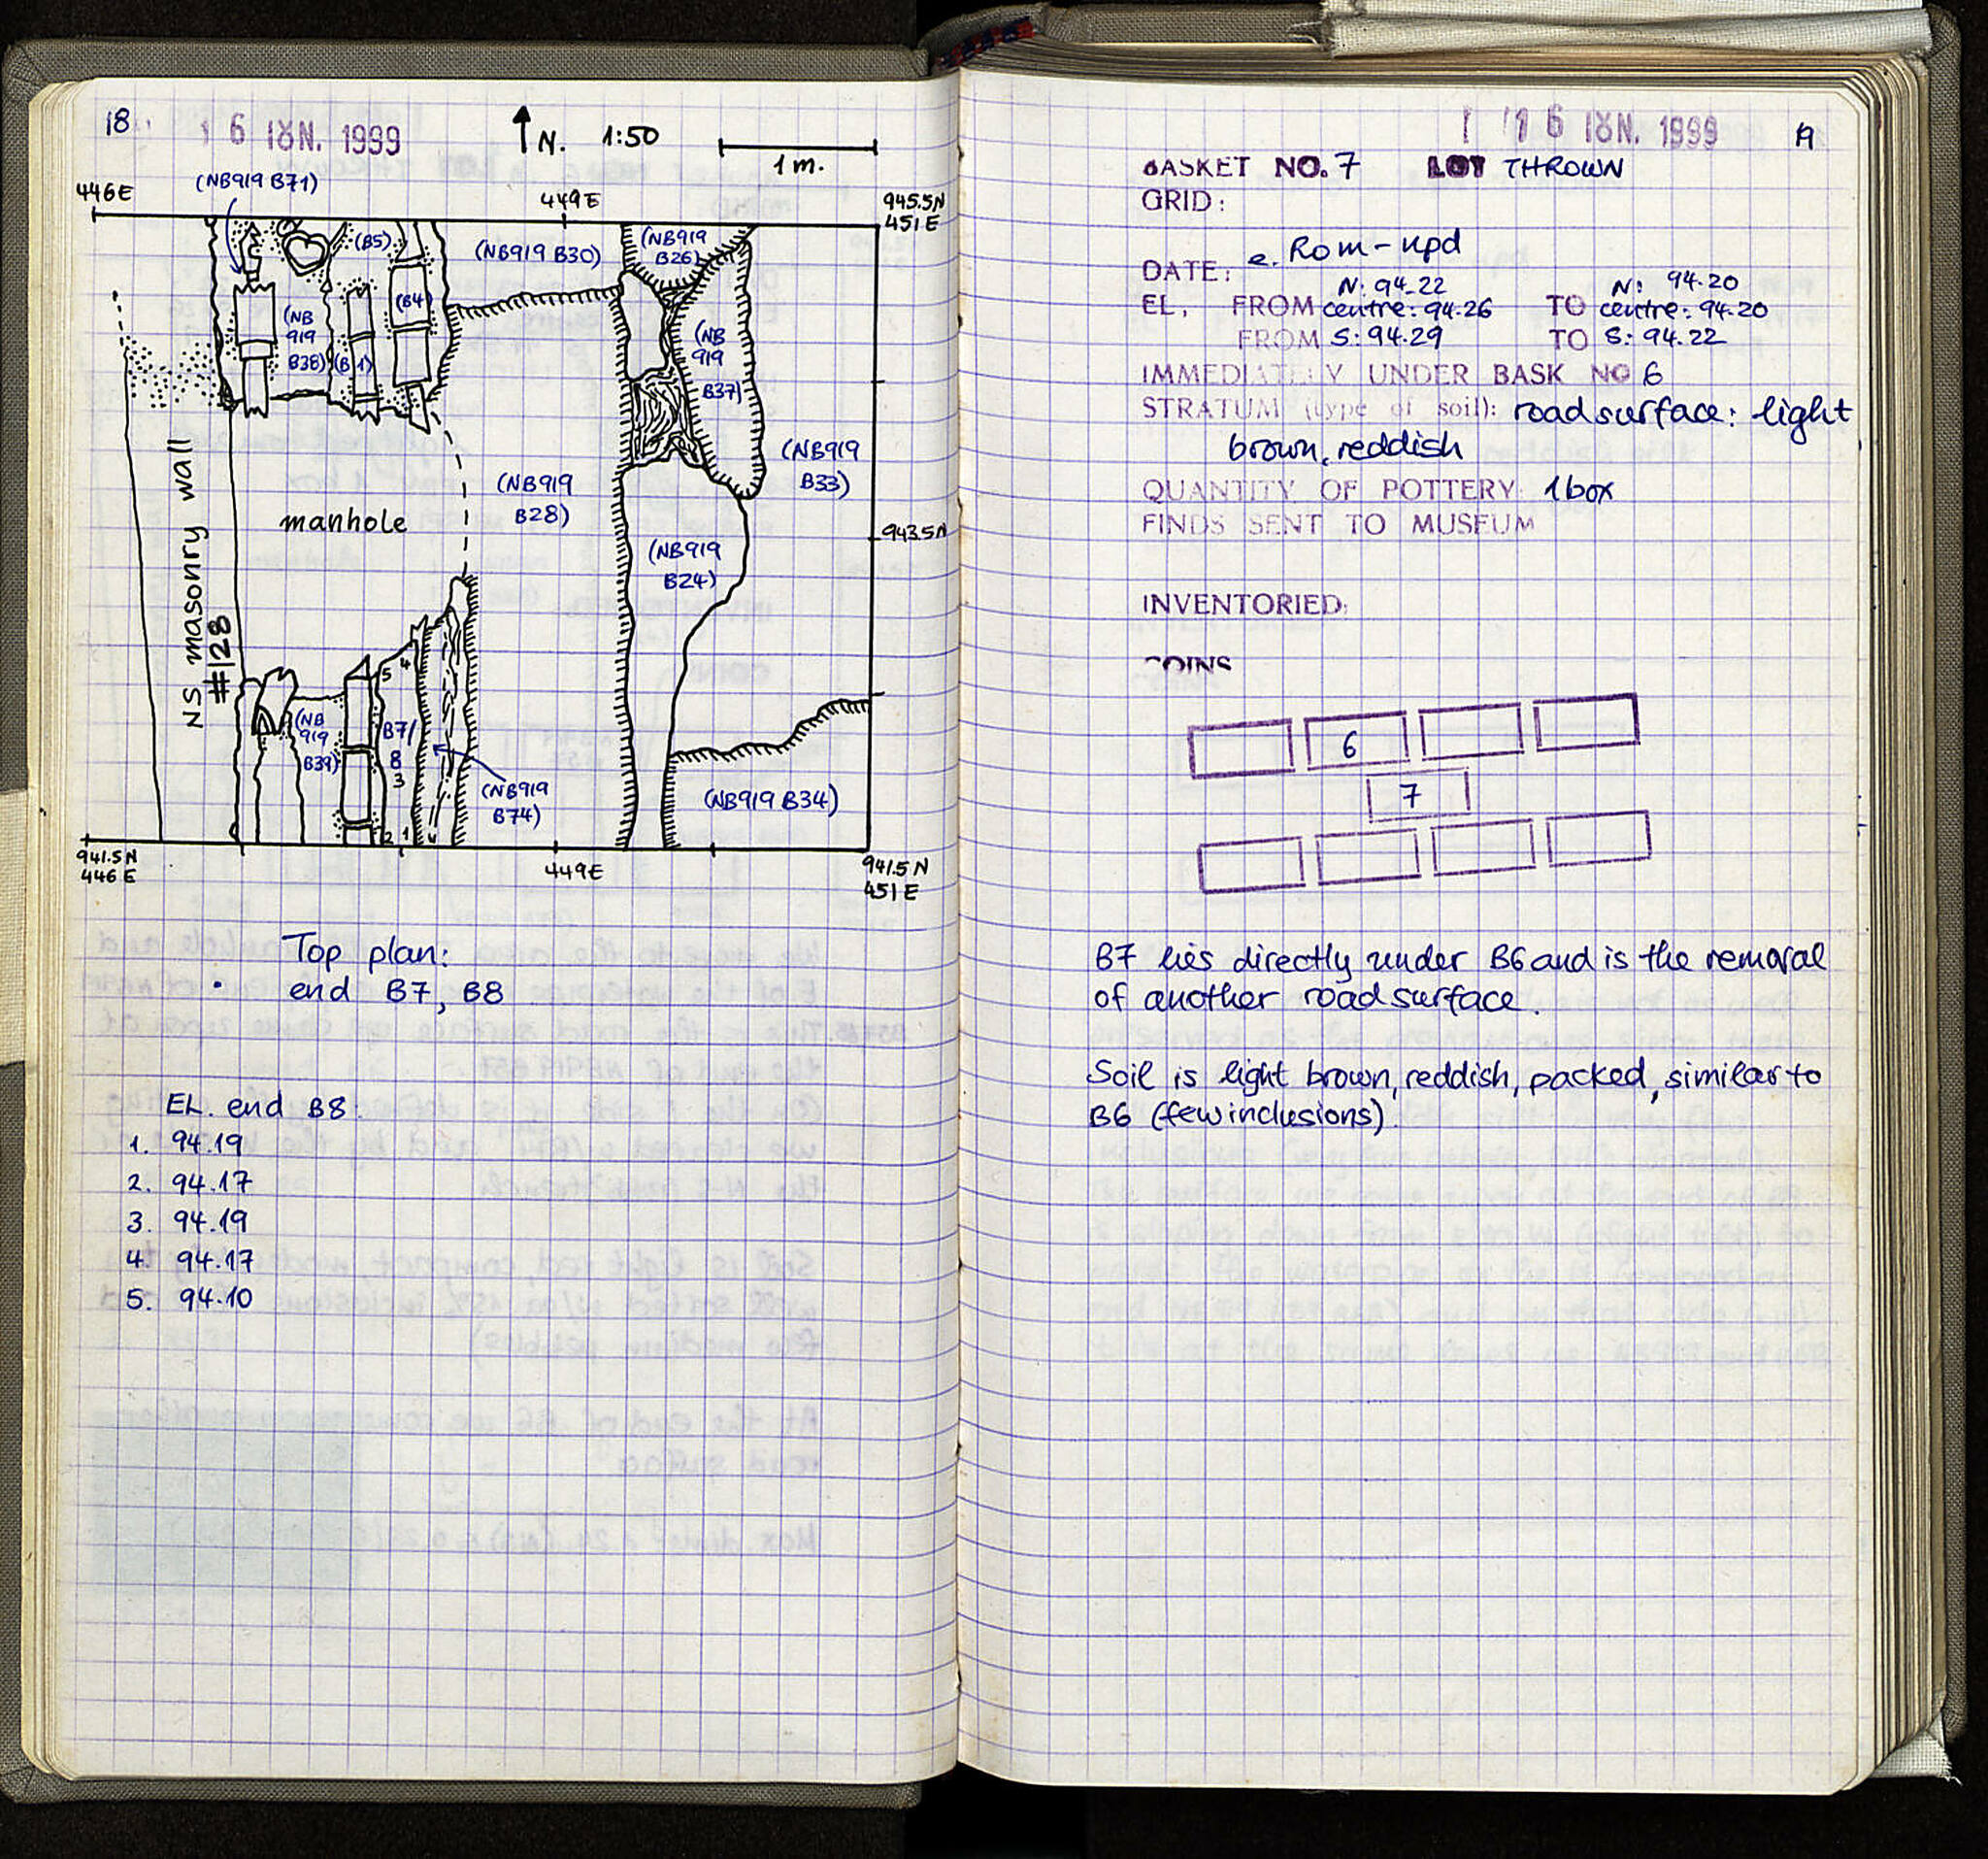 18
16 ΙΟΥΝ. 1999
N. 1:50
1 m.
(NB919 B71)
446E
449E
945.5N
451E
(B5)
(NB919 B30)
(NB919
B26)
(B4)
(NB
919
B38)
(B1)
(NB
919
B37)
NS masonry wall
#128
manhole
(NB919
B28)
(NB919
B33)
943.5N
(NB919
B24)
5
4
(NB
919
B39)
B7/
8
3
2
1
(NB919
B74)
(NB919 B34)
941.5N
446E
449E
941.5N
451E
Top plan:
end B7, B8
EL. end B8.
1. 94.19
2. 94.17
3. 94.19
4. 94.17
5. 94.10
16 ΙΟΥΝ. 1999
BASKET NO. 7 LOT THROWN
GRID:
DATE: e. Rom - upd
N: 94.22 N: 94.20
EL, FROM centre: 94.26 TO centre: 94.20
FROM S: 94.29 TO S: 94.22
IMMEDIATELY UNDER BASK NO 6
STRATUM (type of soil): road surface: light
brown, reddish
QUANTITY OF POTTERY: 1 box
FINDS SENT TO MUSEUM
INVENTORIED:
COINS
6
7
B7 lies directly under B6 and is the removal
of another road surface.
Soil is light brown, reddish, packed, similar to
B6 (few inclusions).